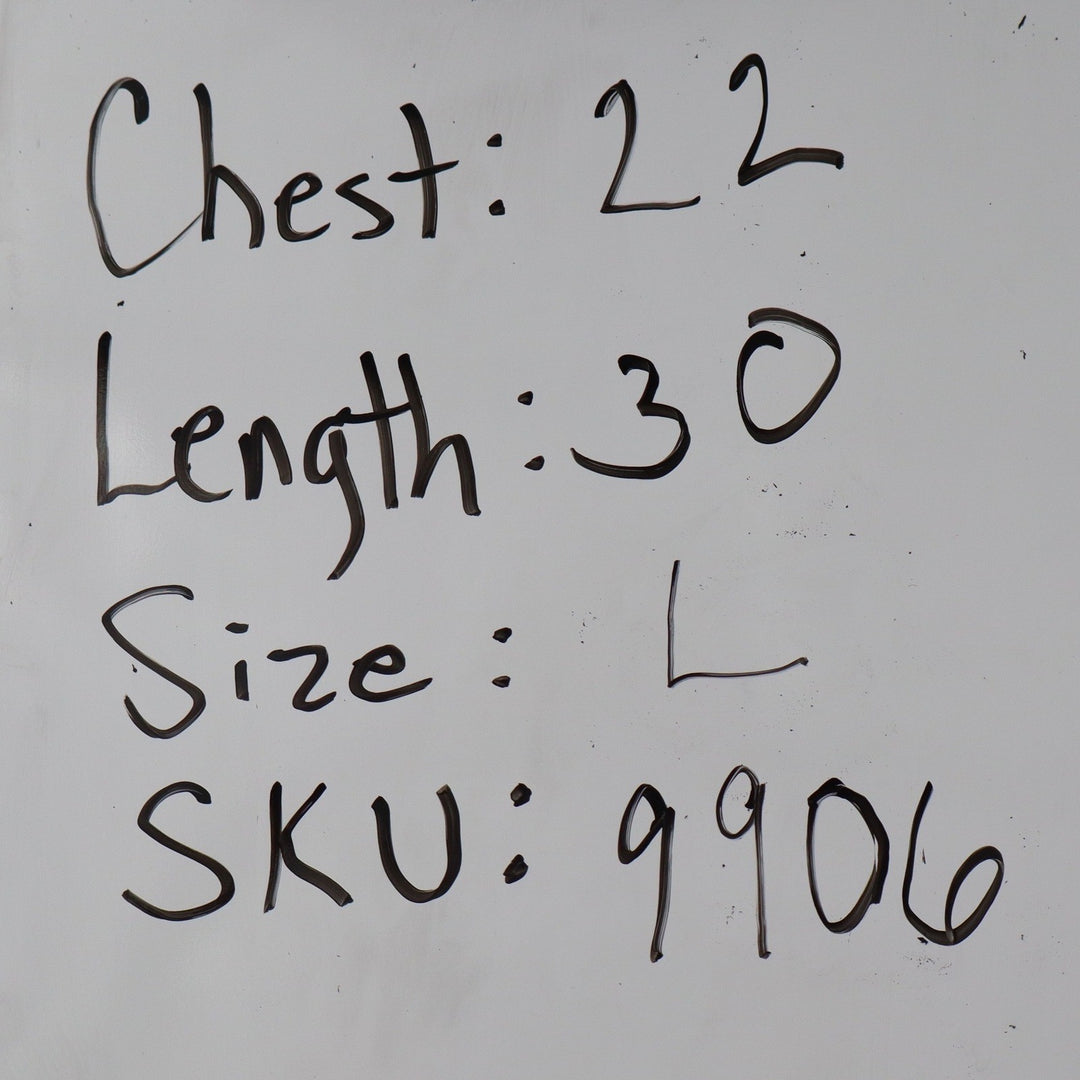 Chest: 22
Length: 30
Size: L
SKU: 9906